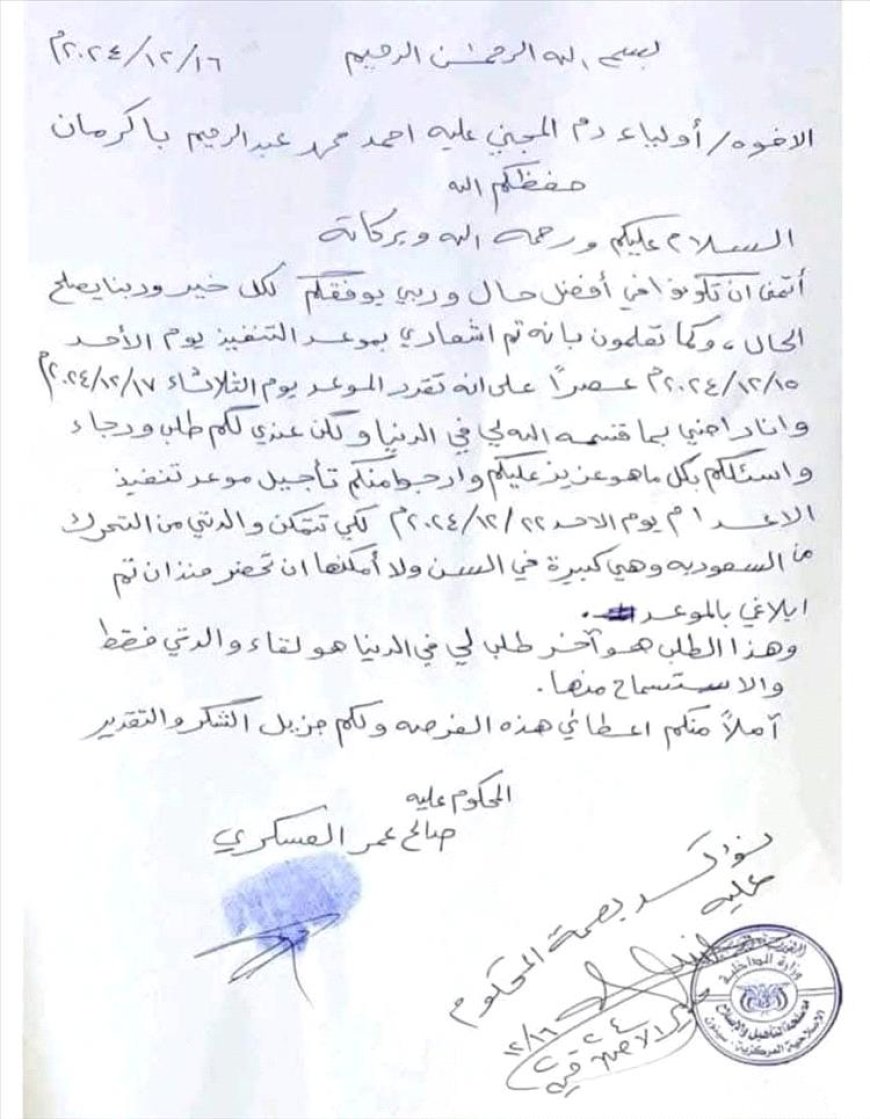 بسم الله الرحمن الرحيم ٢٠٢٤/١٢/١٦م
الاخوه/ أولياء دم المجني عليه احمد محمد عبدالرحيم باكرمان
حفظكم الله
السلام عليكم ورحمه الله وبركاته
أتمنى ان تكونوا في أفضل حال وربي يوفقكم لكل خير وربنا يصلح
الحال، وكما تعلمون بانه تم اشعاري بموعد التنفيذ يوم الأحد
٢٠٢٤/١٢/١٥م عصراً على انه تقرر الموعد يوم الثلاثاء ٢٠٢٤/١٢/١٧م
وانا راضي بما قسمه الله لي في الدنيا ولكن عندي لكم طلب ورجاء
واسئلكم بكل ما هو عزيز عليكم وارجوا منكم تأجيل موعد تنفيذ
الاعدام يوم الاحد ٢٠٢٤/١٢/٢٢م لكي تتمكن والدتي من التحرك
من السعوديه وهي كبيرة في السن ولا أمكنها ان تحضر منذ ان تم
ابلاغي بالموعد.
وهذا الطلب هو آخر طلب لي في الدنيا هو لقاء والدتي فقط
والاستسماح منها.
آملاً منكم اعطائي هذه الفرصه ولكم جزيل الشكر والتقدير
المحكوم عليه
صالح عمر العسكري
نؤكد بصمة المحكوم
عليه
١٢/١٦
٢٠٢٤
وزارة الداخلية
مصلحة التأهيل والإصلاح
الاصلاحية المركزية - سيئون